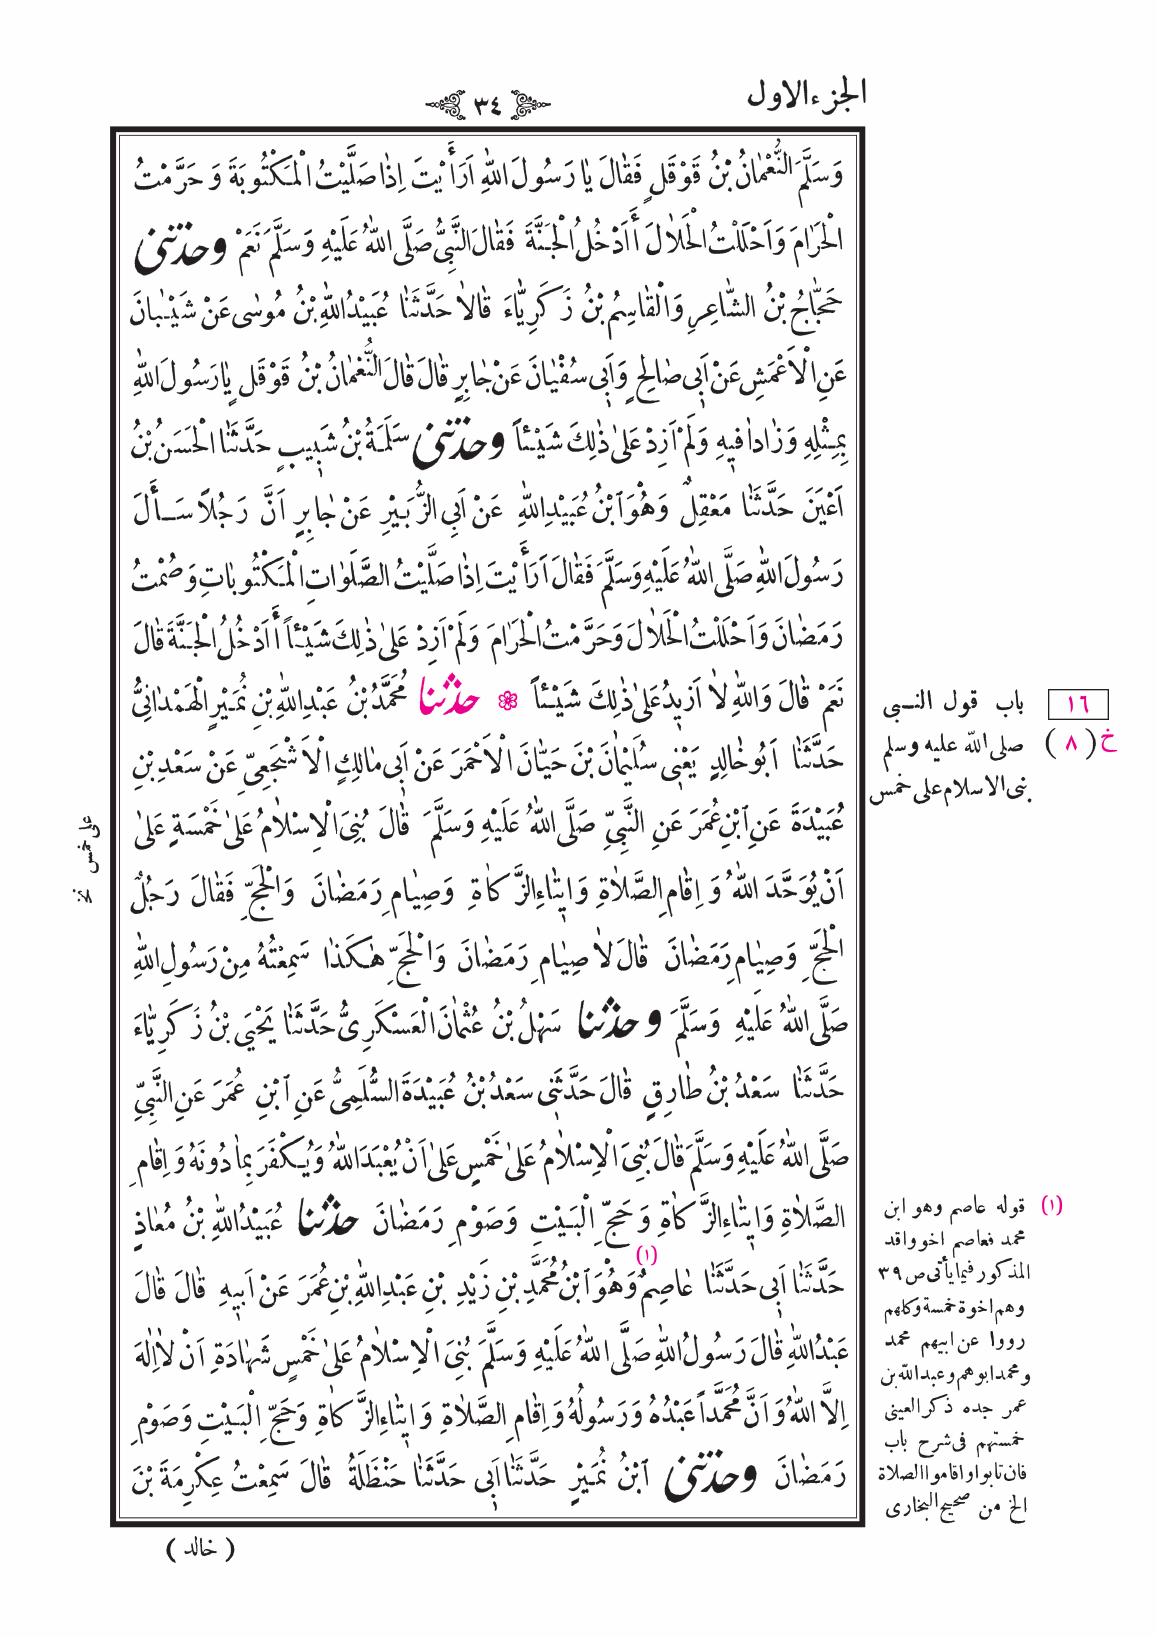 الجزء الاول
٣٤
وَسَلَّمَ النُّعْمَانُ بْنُ قَوْقَلٍ فَقَالَ يَا رَسُولَ اللهِ اَرَأَيْتَ اِذَا صَلَّيْتُ الْمَكْتُوبَةَ وَ حَرَّمْتُ
الْحَرَامَ وَاَحْلَلْتُ الْحَلَالَ أَاَدْخُلُ الْجَنَّةَ فَقَالَ النَّبِىُّ صَلَّى اللهُ عَلَيْهِ وَسَلَّمَ نَعَمْ وحدثنى
حَجَّاجُ بْنُ الشَّاعِرِ وَالْقَاسِمُ بْنُ زَكَرِيَّاءَ قَالَا حَدَّثَنَا عُبَيْدُ اللهِ بْنُ مُوسٰى عَنْ شَيْبَانَ
عَنِ الْاَعْمَشِ عَنْ اَبِى صَالِحٍ وَاَبِى سُفْيَانَ عَنْ جَابِرٍ قَالَ قَالَ النُّعْمَانُ بْنُ قَوْقَلٍ يَا رَسُولَ اللهِ
بِمِثْلِهِ وَزَادَا فِيهِ وَلَمْ اَزِدْ عَلٰى ذٰلِكَ شَيْئاً وحدثنى سَلَمَةُ بْنُ شَبِيبٍ حَدَّثَنَا الْحَسَنُ بْنُ
اَعْيَنَ حَدَّثَنَا مَعْقِلٌ وَهُوَ ٱبْنُ عُبَيْدِ اللهِ عَنْ اَبِى الزُّبَيْرِ عَنْ جَابِرٍ اَنَّ رَجُلاً سَأَلَ
رَسُولَ اللهِ صَلَّى اللهُ عَلَيْهِ وَسَلَّمَ فَقَالَ اَرَأَيْتَ اِذَا صَلَّيْتُ الصَّلَوَاتِ الْمَكْتُوبَاتِ وَصُمْتُ
رَمَضَانَ وَاَحْلَلْتُ الْحَلَالَ وَحَرَّمْتُ الْحَرَامَ وَلَمْ اَزِدْ عَلٰى ذٰلِكَ شَيْئاً أَاَدْخُلُ الْجَنَّةَ قَالَ
نَعَمْ قَالَ وَاللهِ لَا اَزِيدُ عَلٰى ذٰلِكَ شَيْئاً حدثنا مُحَمَّدُ بْنُ عَبْدِ اللهِ بْنِ نُمَيْرٍ الْهَمْدَانِىُّ
حَدَّثَنَا اَبُو خَالِدٍ يَعْنِى سُلَيْمَانَ بْنَ حَيَّانَ الْاَحْمَرَ عَنْ اَبِى مَالِكٍ الْاَشْجَعِىِّ عَنْ سَعْدِ بْنِ
عُبَيْدَةَ عَنِ ٱبْنِ عُمَرَ عَنِ النَّبِىِّ صَلَّى اللهُ عَلَيْهِ وَسَلَّمَ قَالَ بُنِىَ الْاِسْلَامُ عَلٰى خَمْسَةٍ عَلٰى
اَنْ يُوَحَّدَ اللهُ وَ اِقَامِ الصَّلَاةِ وَ اِيتَاءِ الزَّكَاةِ وَصِيَامِ رَمَضَانَ وَالْحَجِّ فَقَالَ رَجُلٌ
الْحَجِّ وَصِيَامِ رَمَضَانَ قَالَ لَا صِيَامِ رَمَضَانَ وَالْحَجِّ هٰكَذَا سَمِعْتُهُ مِنْ رَسُولِ اللهِ
صَلَّى اللهُ عَلَيْهِ وَسَلَّمَ و حدثنا سَهْلُ بْنُ عُثْمَانَ الْعَسْكَرِىُّ حَدَّثَنَا يَحْيَى بْنُ زَكَرِيَّاءَ
حَدَّثَنَا سَعْدُ بْنُ طَارِقٍ قَالَ حَدَّثَنِى سَعْدُ بْنُ عُبَيْدَةَ السُّلَمِىُّ عَنِ ٱبْنِ عُمَرَ عَنِ النَّبِىِّ
صَلَّى اللهُ عَلَيْهِ وَسَلَّمَ قَالَ بُنِىَ الْاِسْلَامُ عَلٰى خَمْسٍ عَلٰى اَنْ يُعْبَدَ اللهُ وَيُكْفَرَ بِمَا دُونَهُ وَ اِقَامِ
الصَّلَاةِ وَ اِيتَاءِ الزَّكَاةِ وَ حَجِّ الْبَيْتِ وَصَوْمِ رَمَضَانَ حدثنا عُبَيْدُ اللهِ بْنُ مُعَاذٍ
حَدَّثَنَا اَبِى حَدَّثَنَا عَاصِمٌ (١) وَهُوَ ٱبْنُ مُحَمَّدِ بْنِ زَيْدِ بْنِ عَبْدِ اللهِ بْنِ عُمَرَ عَنْ اَبِيهِ قَالَ قَالَ
عَبْدُ اللهِ قَالَ رَسُولُ اللهِ صَلَّى اللهُ عَلَيْهِ وَسَلَّمَ بُنِىَ الْاِسْلَامُ عَلٰى خَمْسٍ شَهَادَةِ اَنْ لَا اِلٰهَ
اِلَّا اللهُ وَ اَنَّ مُحَمَّداً عَبْدُهُ وَرَسُولُهُ وَ اِقَامِ الصَّلَاةِ وَ اِيتَاءِ الزَّكَاةِ وَحَجِّ الْبَيْتِ وَصَوْمِ
رَمَضَانَ وحدثنى ٱبْنُ نُمَيْرٍ حَدَّثَنَا اَبِى حَدَّثَنَا حَنْظَلَةُ قَالَ سَمِعْتُ عِكْرِمَةَ بْنَ
( خالد )
١٦ باب قول النـبى
خ ( ٨ ) صلى الله عليه وسلم
بنى الاسلام على خمس
(١) قوله عاصم وهو ابن
محمد فعاصم اخو واقد
المذكور فيما يأتى ص ٣٩
وهم اخوة خمسة وكلهم
رووا عن ابيهم محمد
ومحمد ابوهم وعبدالله بن
عمر جده ذكر العينى
خمستهم فى شرح باب
فان تابوا واقاموا الصلاة
الخ من صحيح البخارى
على خمس نخ